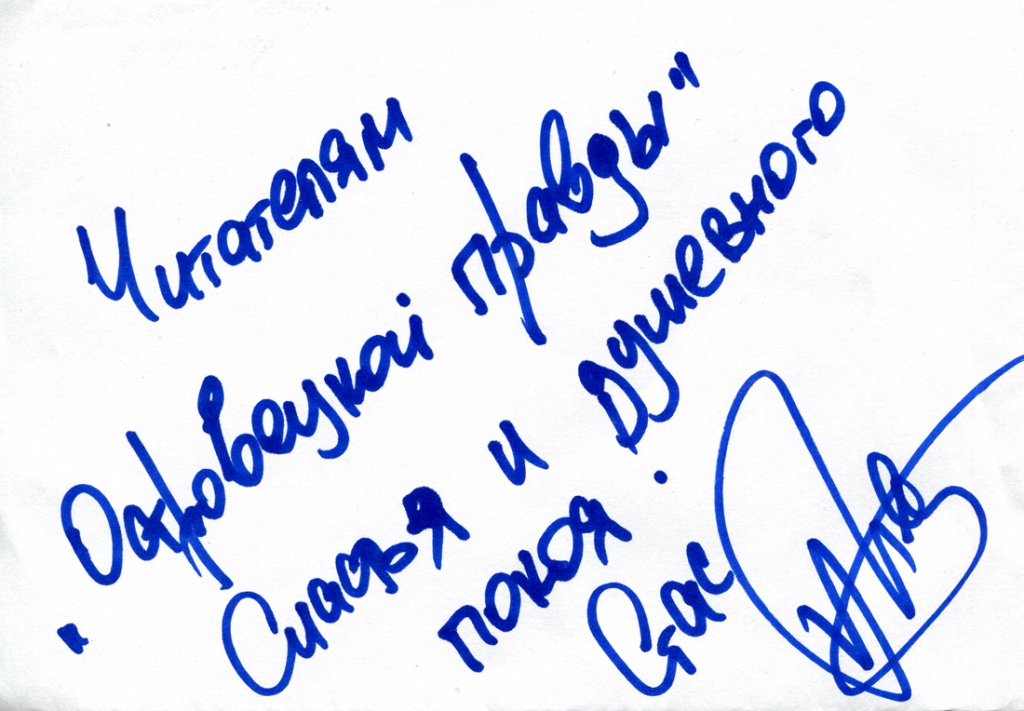 Читателям
"Островецкой правды"
Счастья и душевного
покоя.
Стас